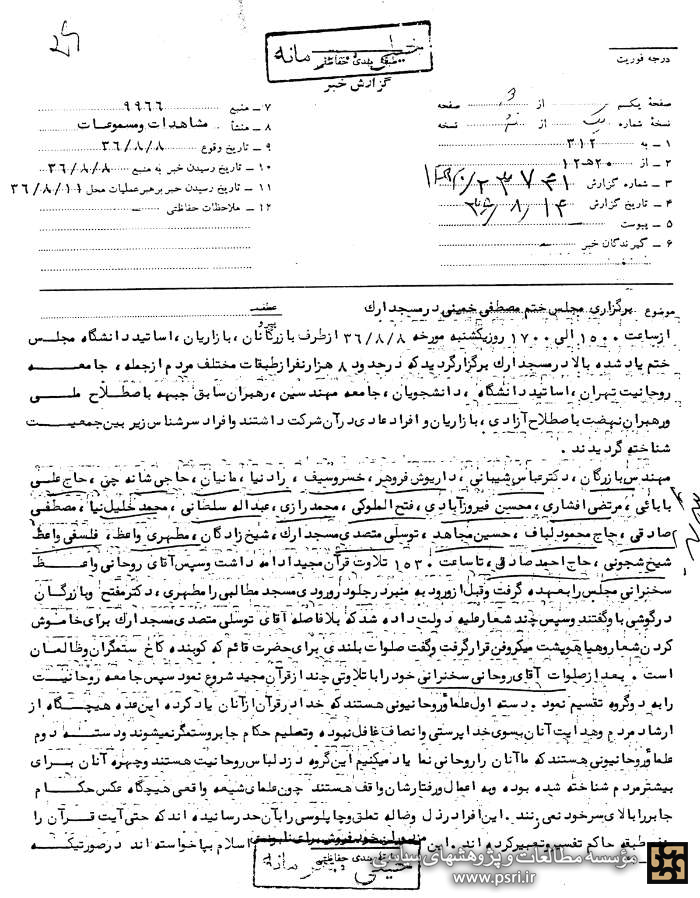 خیلی محرمانه
طبقه بندی حفاظتی
گزارش خبر
درجه فوریت
صفحه یکم از 3 صفحه
نسخه شماره از نسخه
۱ - به ۳۱۲
۲ - از ۲۰ هـ ۱۲
۳ - شماره گزارش ۲۳۷۴۱ /
۴ - تاریخ گزارش ۱۴ / ۸ /
۵ - پیوست
۶ - گیرندگان خبر
۷ - منبع ۹۹۶۶
۸ - منشأ مشاهدات ومسموعات
۹ - تاریخ وقوع ۳۶/۸/۸
۱۰ - تاریخ رسیدن خبر به منبع ۳۶/۸/۸
۱۱ - تاریخ رسیدن خبر برهبر عملیات محل ۳۶/۸/۱۱
۱۲ - ملاحظات حفاظتی
موضوع برگزاری مجلس ختم مصطفی خمینی در مسجد ارك
عطف
پیرو
از ساعت ۱۵۰۰ الی ۱۷۰۰ روز یکشنبه مورخه ۳۶/۸/۸ از طرف بازرگانان ، بازاریان ، اساتید دانشگاه مجلس
ختم یاد شده بالا در مسجد ارك برگزار گردید که در حدود ۸ هزار نفر از طبقات مختلف مردم از جمله ، جامعه
روحانیت تهران ، اساتید دانشگاه ، دانشجویان ، جامعه مهندسین ، رهبران سابق جبهه باصطلاح ملی
و رهبران نهضت باصطلاح آزادی ، بازاریان و افراد عادی در آن شرکت داشتند و افراد سرشناس زیر بین جمعیت
شناخته گردیدند .
مهندس بازرگان ، دکتر عباس شیبانی ، داریوش فروهر ، خسرو سیف ، رادنیا ، مانیان ، حاجی شانه چی ، حاج علی
بابائی ، مرتضی افشاری ، محسین فیروزآبادی ، فتح الملوکی ، محمد رازی ، عبداله سلطانی ، محمد خلیل نیا ، مصطفی
صادقی ، حاج محمود لباف ، حسین مجاهد ، توسلی متصدی مسجد ارك ، شیخ زادگان ، مطهری واعظ ، فلسفی واعظ
شیخ شجونی ، حاج احمد صادقی ، تا ساعت ۱۵۳۰ تلاوت قرآن مجید ادامه داشت و سپس آقای روحانی واعظ
سخنرانی مجلس را بعهده گرفت و قبل از ورود به منبر در جلو در ورودی مسجد مطالبی را مطهری ، دکتر مفتح و بازرگان
در گوشی با و گفتند و سپس چند شعار علیه دولت داده شد که بلافاصله آقای توسلی متصدی مسجد ارك برای خاموش
کردن شعار و هیاهو پشت میکروفن قرار گرفت و گفت صلوات بلندی برای حضرت قائم که کوبنده کاخ ستمگران و ظالمان
است . بعد از صلوات آقای روحانی سخنرانی خود را با تلاوتی چند از قرآن مجید شروع نمود سپس جامعه روحانیت
را به دو گروه تقسیم نمود . دسته اول علما و روحانیونی هستند که خدا در قرآن از آنان یاد کرده این عده هیچگاه از
ارشاد مردم و هدایت آنان بسوی خدا پرستی و انصاف غافل نبوده و تعلیم حکام جابر و ستمگر نمیشوند و دسته دوم
علما و روحانیونی هستند که ما آنان را روحانی نما یاد میکنیم این گروه دزد لباس روحانیت هستند و چهره آنان برای
بیشتر مردم شناخته شده بوده و به اعمال و رفتارشان واقف هستند چون علمای شیعه واقعی هیچگاه عکس حکام
جابر را بالای سر خود نمی زنند . این افراد رذل و ضاله تعلق و چاپلوسی را بآن حد رسانیده اند که حتی آیت قرآن را
طبقه حاکم تفسیر و تعبیر کرده اند . این خود فروش برای نابودی اسلام بپا خواسته اند در صورتیکه
طبقه بندی حفاظتی
خیلی محرمانه
مؤسسه مطالعات و پژوهشهای سیاسی
www.psri.ir